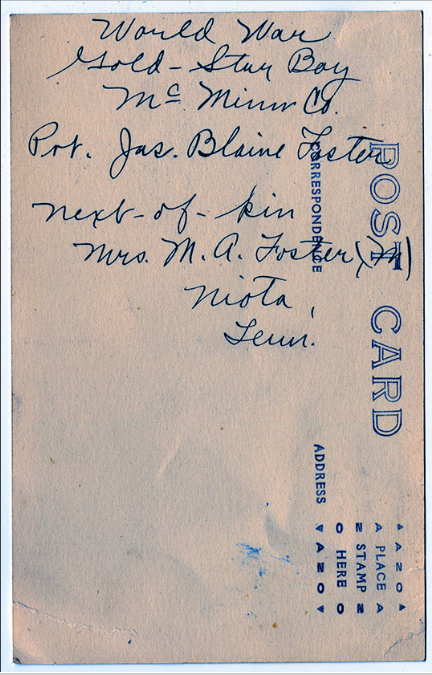 World War
Gold-Star Boy
Mc Minn Co.
Pvt. Jas. Blaine Foster
next-of-kin
Mrs. M. A. Foster, (M)
Niota,
Tenn.
POST CARD
CORRESPONDENCE
ADDRESS
AZO
PLACE
STAMP
HERE
AZO